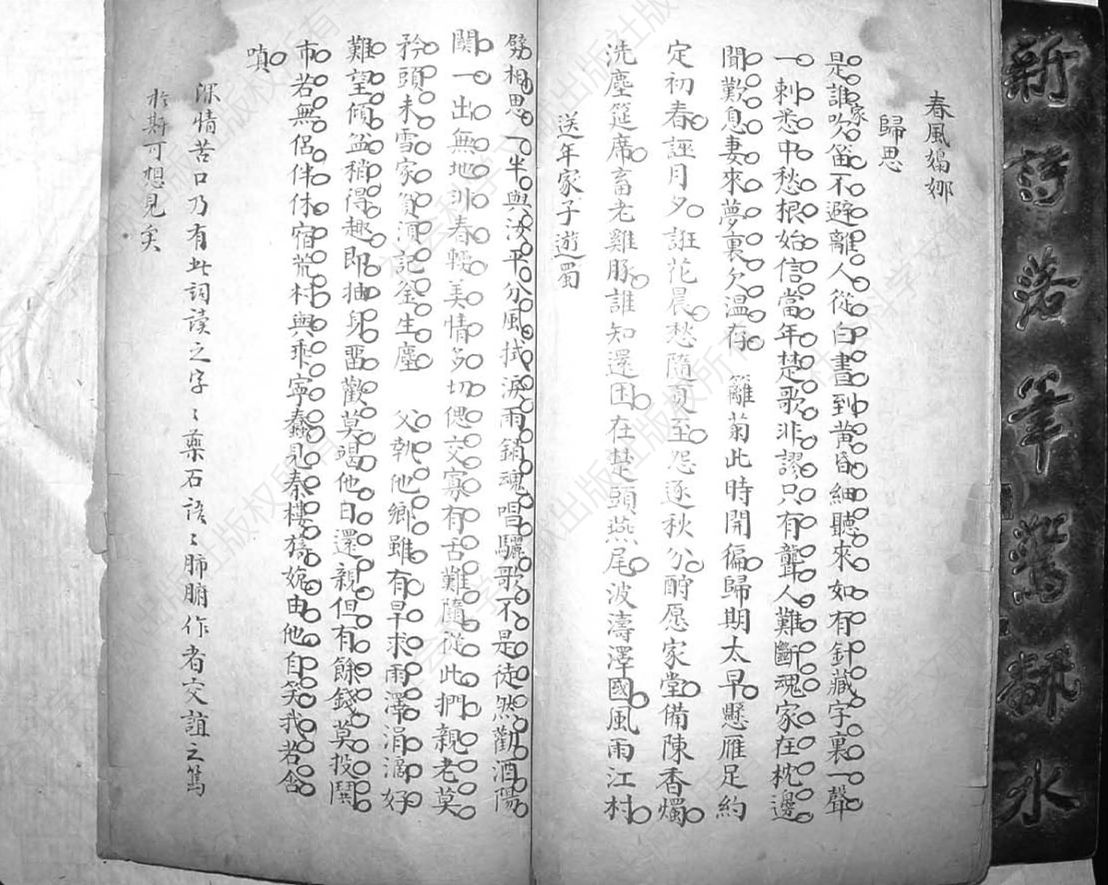 春風嬝娜
歸思
是誰家吹笛不避離人從白晝到黃昏細聽來如有針藏字裏一聲
一刺悉中愁根始信當年楚歌非謬只有聾人難斷魂家在枕邊
聞歎息妻來夢裏欠溫存 籬菊此時開徧歸期太早懸雁足約
定初春誑月夕誑花晨愁隨夏至怨逐秋分酧愿家堂備陳香燭
洗塵筵席畜老雞豚誰知還困在楚頭燕尾波濤澤國風雨江村
送年家子遊蜀
劈相思一半與汝平分風拭淚雨銷魂唱驪歌不是徒然勸酒陽
關一出無地非春輕美情多切偲交寡有舌難隨從此捫親老莫
矜頭未雪家貧須記釜生塵 父執他鄉雖有旱求雨澤涓滴好
難望傾盆稍得趣即抽身留歡莫竭他日還親但有餘錢莫投鬧
市若無侶伴休宿荒村與乘寧蠢見秦樓楚婉由他自笑我若含
嗔
深情苦口乃有此詞讀之字〻藥石語〻肺腑作者交誼之篤
於斯可想見矣
新詩落筆驚翻水